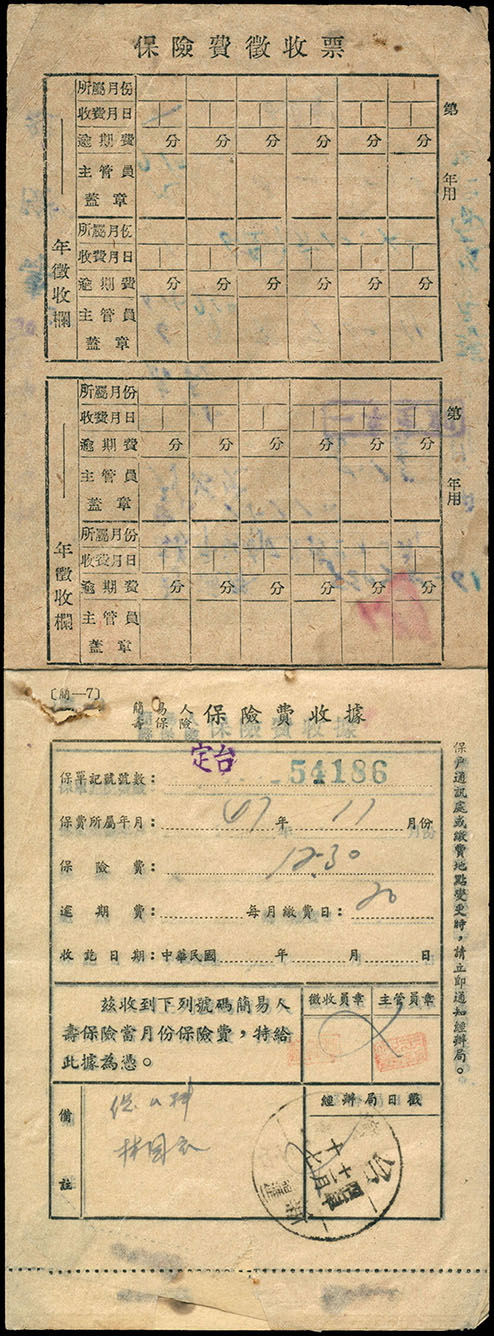 保險費徵收票
第 年用
所屬月份
收費月日
逾期費 分 分 分 分 分 分
主管員
蓋章
所屬月份
收費月日
逾期費 分 分 分 分 分 分
主管員
蓋章
年徵收欄
第 年用
所屬月份
收費月日
逾期費 分 分 分 分 分 分
主管員
蓋章
所屬月份
收費月日
逾期費 分 分 分 分 分 分
主管員
蓋章
年徵收欄
〔簡一7〕
簡易人壽保險 保險費收據
定台
保單記號號數: 54186
保費所屬年月: 年 11 月份
保險費: 12.30
逾期費: 每月繳費日: 20
收訖日期:中華民國 年 月 日
茲收到下列號碼簡易人
壽保險當月份保險費,特給
此據為憑。
徵收員章 主管員章
備註
經辦局日戳
台
保戶通訊處或繳費地點變更時,請立即通知經辦局。